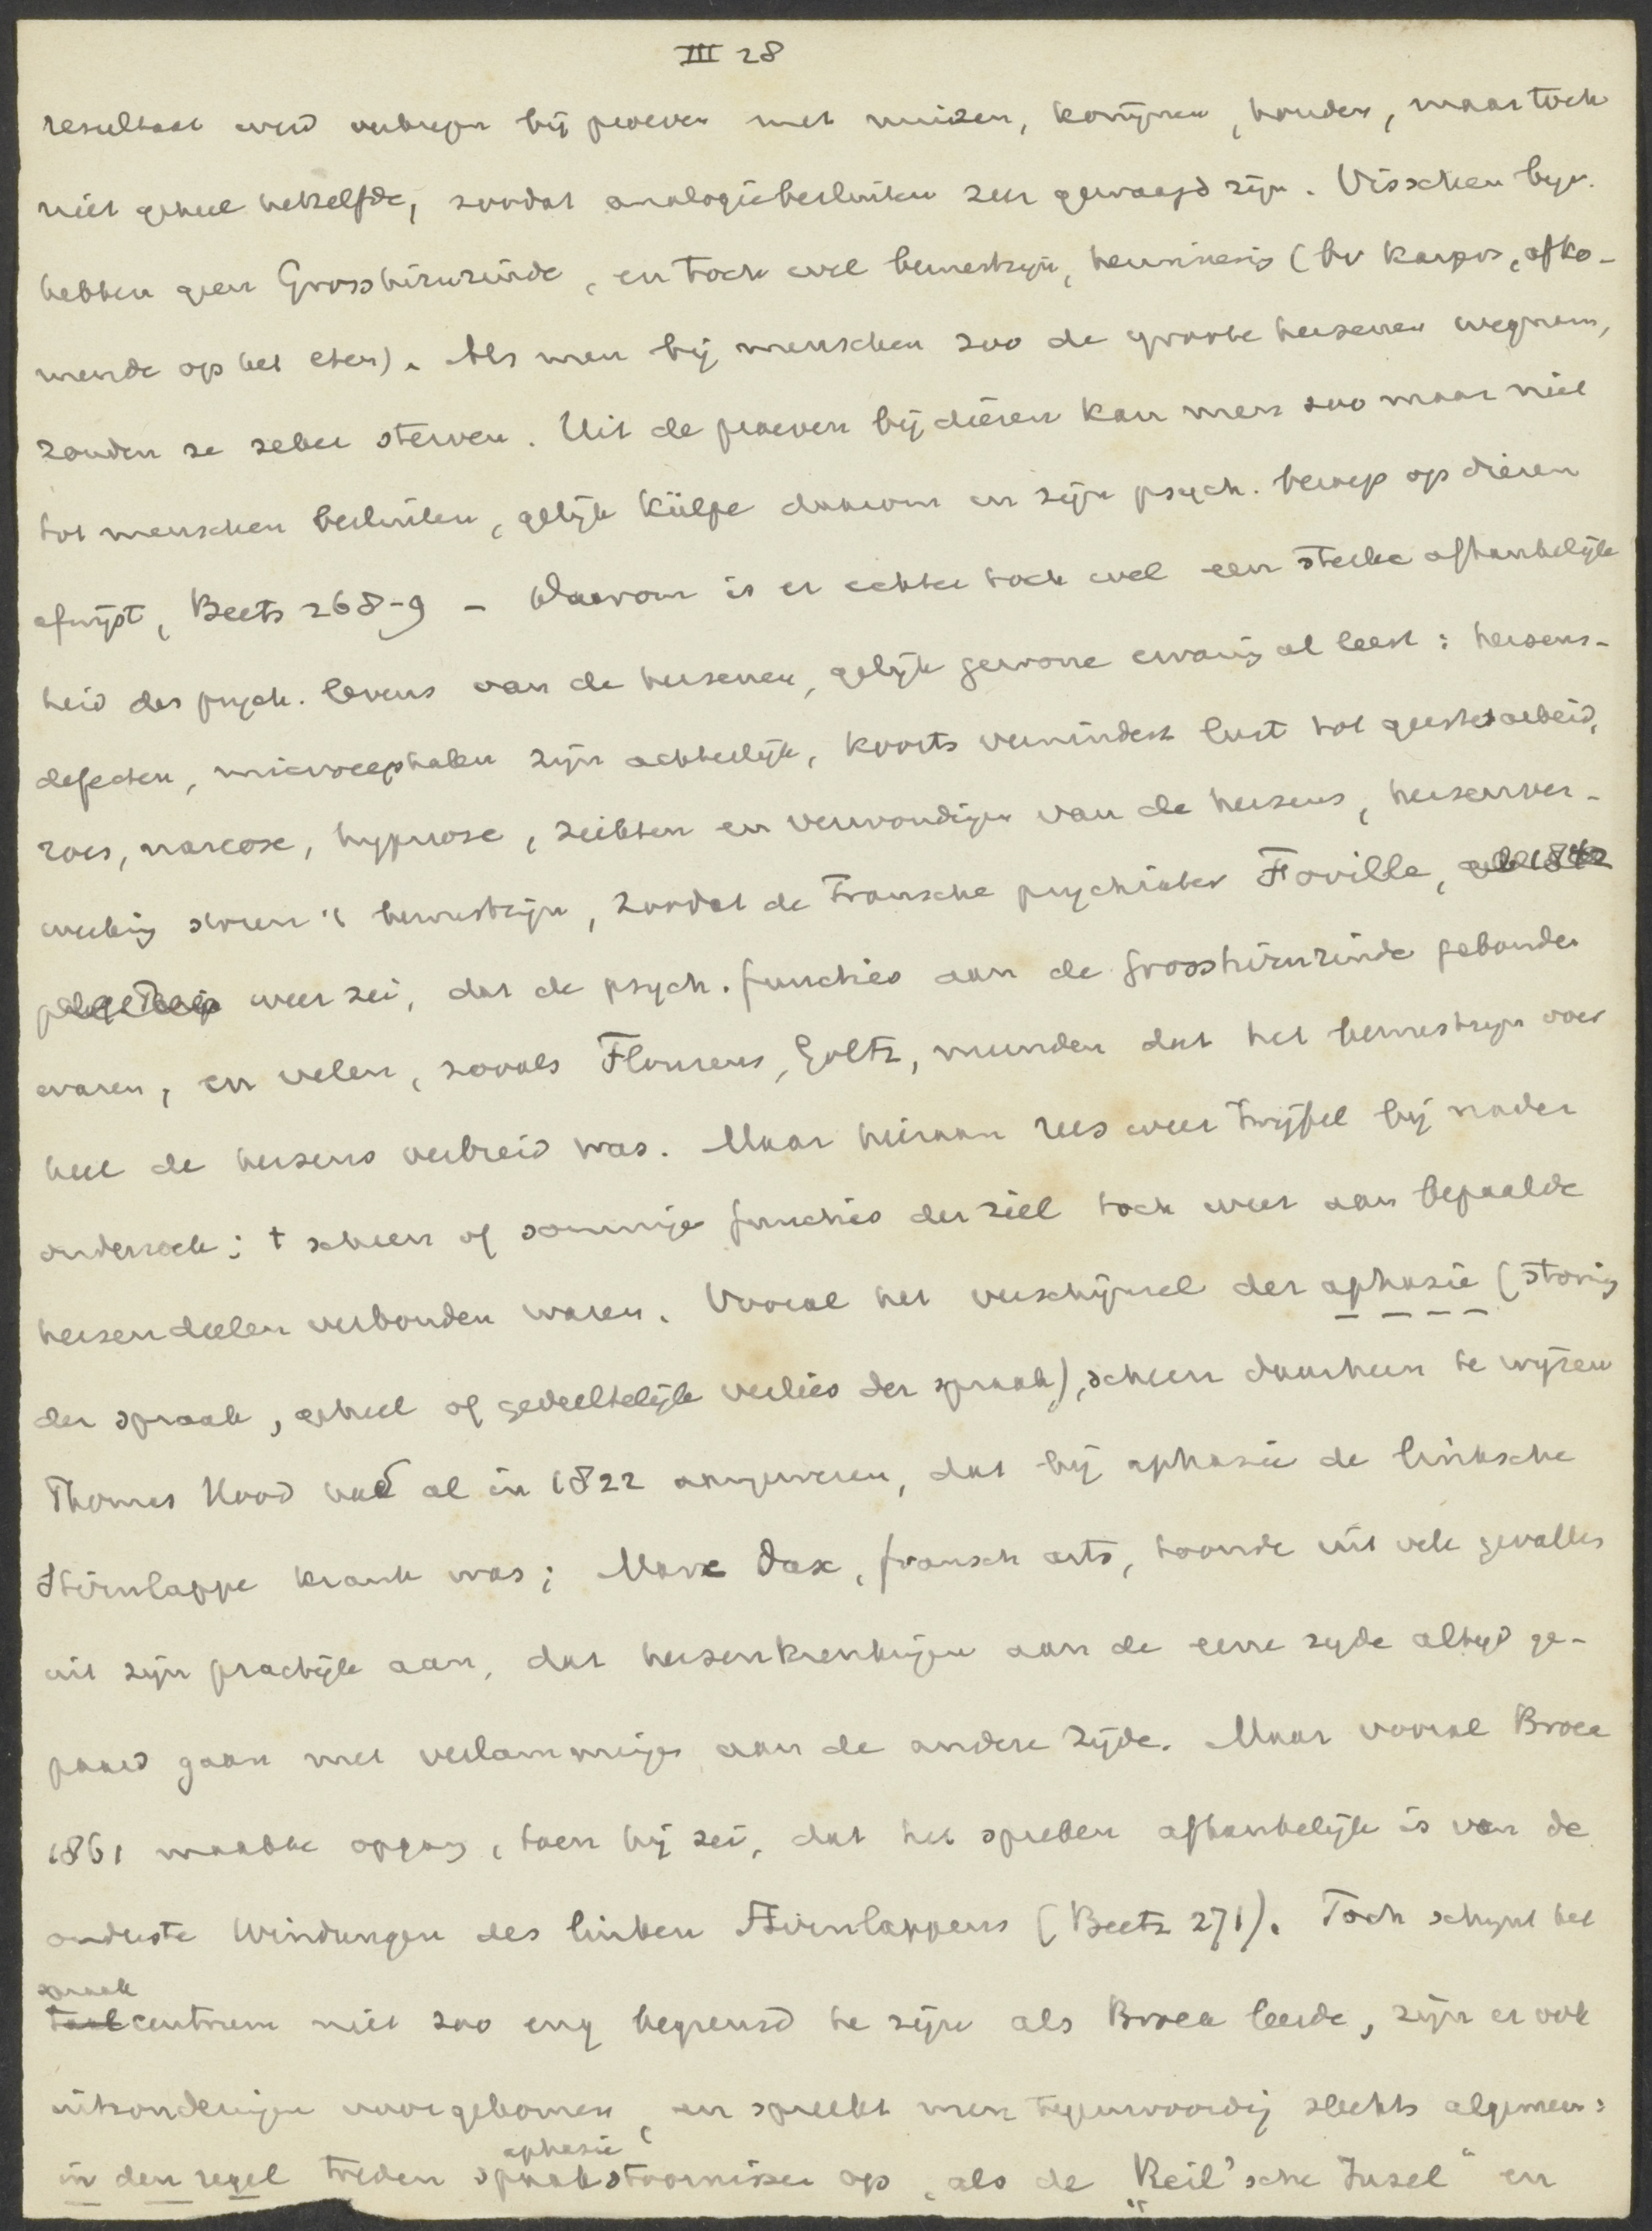 III 28
resultaat werd verkregen bij proeven met muizen, konijnen, honden, maar toch
niet geheel hetzelfde, zoodat analogiebesluiten zeer gewaagd zijn. Visschen bijv.
hebben geen Grosshirnrinde, en toch wel bewustzijn, herinnering (bv karpers, afko-
mende op het eten). Als men bij menschen zoo de groote hersenen wegnam,
zouden ze zeker sterven. Uit de proeven bij dieren kan men zoo maar niet
tot menschen besluiten, gelijk Külpe daarom in zijn psych. beroep op dieren
afwijst, Beets 268-9 - Daarom is er echter toch wel een sterke afhankelijk
heid des psych. levens van de hersenen, gelijk gewone ervaring al leert: hersens-
defecten, microcephalen zijn achterlijk, koorts vermindert lust tot geestesarbeid,
roes, narcose, hypnose, ziekten en verwondingen van de hersens, hersenver-
weeking storen 't bewustzijn, zoodat de Fransche psychiater Foville,
weer zei, dat de psych. functies aan de Grosshirnrinde gebonden
waren, en velen, zooals Flourens, Goltz, meenden dat het bewustzijn over
heel de hersens verbreid was. Maar hieraan rees weer twijfel bij nader
onderzoek; t scheen of sommige functies der ziel toch weer aan bepaalde
hersendeelen verbonden waren. Vooral het verschijnsel der aphasie (storing
der spraak, geheel of gedeeltelijk verlies der spraak), scheen daarheen te wijzen
Thomas Hood had al in 1822 aangewezen, dat bij aphasie de linksche
Stirnlappe krank was; Marc Dax, fransch arts, toonde uit vele gevallen
uit zijn practijk aan, dat hersenkrenkingen aan de eene zyde altyd ge-
paard gaan met verlammingen aan de andere zijde. Maar vooral Broca
1861 maakte opgang, toen hij zei, dat het spreken afhankelijk is van de
onderste Windungen des linken Stirnlappens (Beetz 271). Toch schynt het
spraak
taalcentrum niet zoo eng begrensd te zijn als Broca leerde, zijn er ook
uitzonderingen voorgekomen, en spreekt men tegenwoordig slechts algemeen:
aphasie
in den regel treden spraakstoornissen op, als de "Reil'sche Insel" en